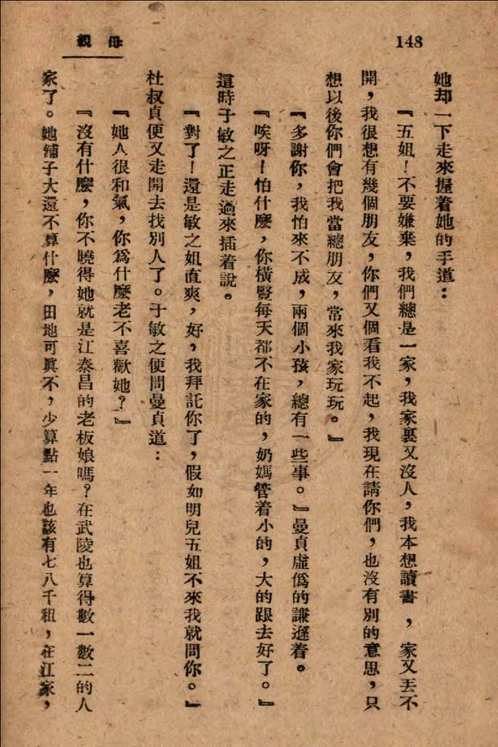 148
母親
她却一下走來握着她的手道：
『五姐！不要嫌棄，我們總是一家，我家裏又沒人，我本想讀書，家又丟不
開，我很想有幾個朋友，你們又個看我不起，我現在請你們，也沒有別的意思，只
想以後你們會把我當總朋友，常來我家玩玩。』
『多謝你，我怕來不成，兩個小孩，總有一些事。』曼貞虛僞的謙遜着。
『唉呀！怕什麼，你橫豎每天都不在家的，奶媽管着小的，大的跟去好了。』
這時于敏之正走過來插着說。
『對了！還是敏之姐直爽，好，我拜託你了，假如明兒五姐不來我就問你。』
杜叔貞便又走開去找別人了。于敏之便問曼貞道：
『她人很和氣，你爲什麼老不喜歡她？』
『沒有什麼，你不曉得她就是江泰昌的老板娘嗎？在武陵也算得數一數二的人
家了。她舖子大還不算什麼，田地可眞不，少算點一年也該有七八千租，在江家，